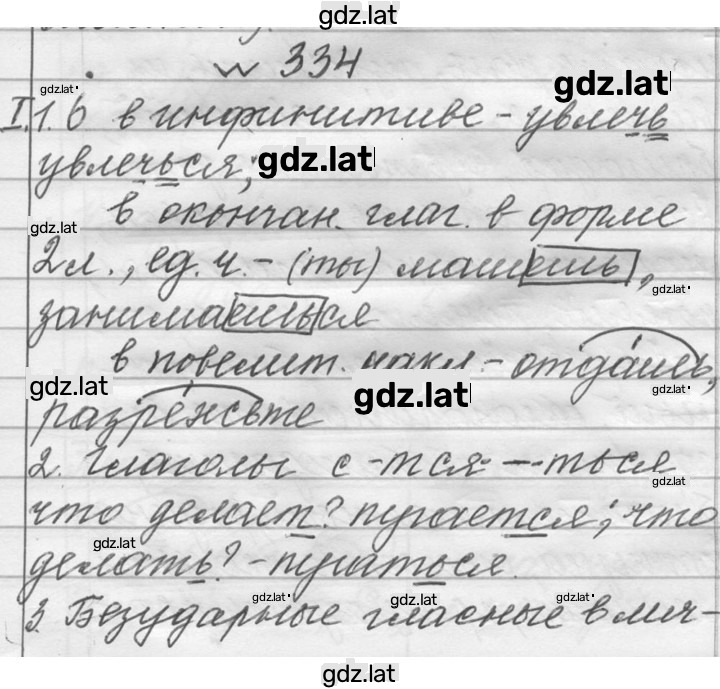 gdz.lat
№ 334
gdz.lat gdz.lat
I. 1. ь в инфинитиве - увлечь
увлечься; gdz.lat
в окончан. глаг. в форме
gdz.lat
2 л., ед. ч. - (ты) машешь,
gdz.lat
занимаешься
в повелит. накл. - отдашь,
gdz.lat gdz.lat gdz.lat
разрежьте
2. Глаголы с -тся - -ться
gdz.lat
что делает? пугается; что
gdz.lat
делать? - пугаться.
gdz.lat gdz.lat gdz.lat
3. Безударные гласные в лич-
gdz.lat